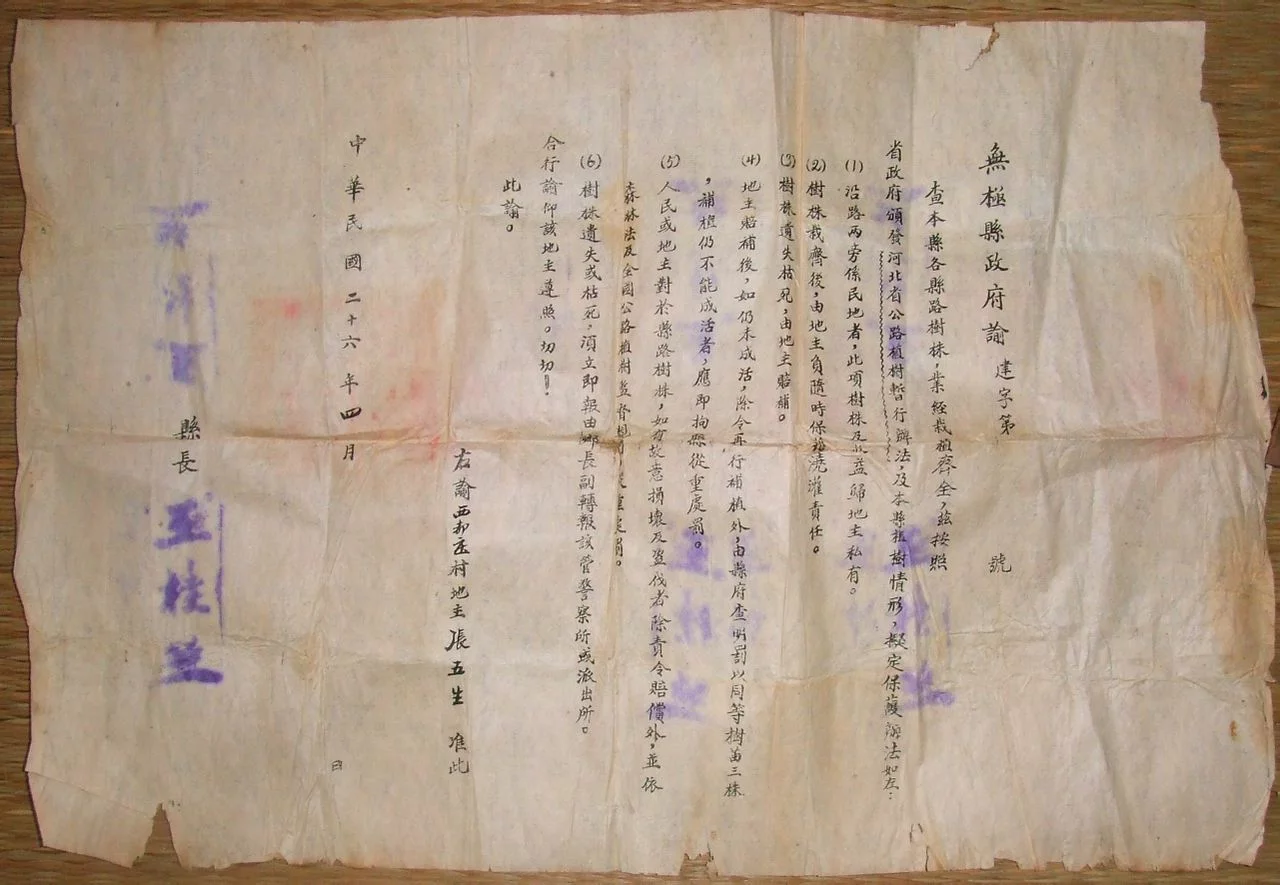 無極縣政府諭 建字第 號
查本縣各縣路樹株，業經栽植齊全，茲按照
省政府頒發河北省公路植樹暫行辦法，及本縣植樹情形，擬定保護辦法如左：
(1) 沿路兩旁係民地者，此項樹株及收益歸地主私有。
(2) 樹株栽齊後，由地主負隨時保護澆灌責任。
(3) 樹株遺失枯死，由地主賠補。
(4) 地主賠補後，如仍未成活，除令再行補植外，由縣府查明罰以同等樹苗三株
，補植仍不能成活者，應即拘縣從重處罰。
(5) 人民或地主對於縣路樹株，如有故意損壞及盜伐者除責令賠償外，並依
森林法及全國公路植樹監督規則，從重處罰。
(6) 樹株遺失或枯死，須立即報由鄉長副轉報該管警察所或派出所。
合行諭仰該地主遵照。切切！
此諭。
右諭西 村地主張五生 准此
中華民國二十六年四月 日
縣長 桂